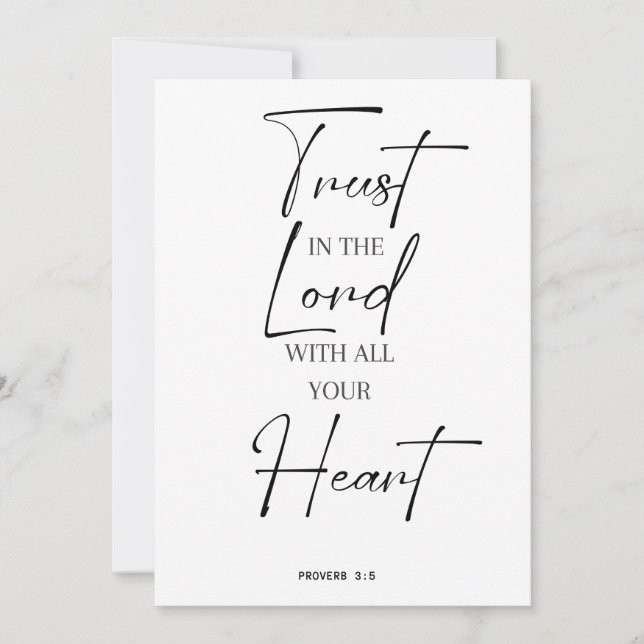 Trust
IN THE
Lord
WITH ALL
YOUR
Heart
PROVERB 3:5